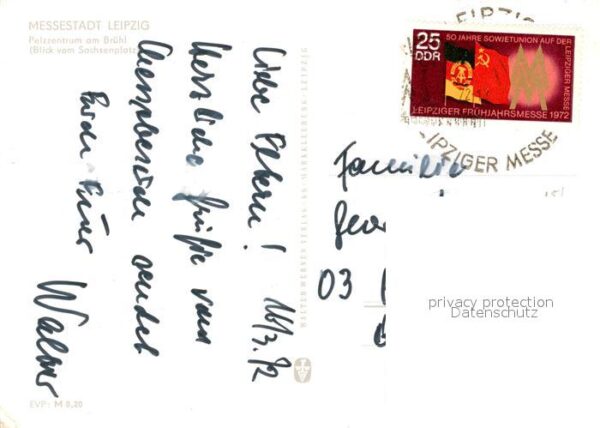 MESSESTADT LEIPZIG
Pelzzentrum am Brühl
(Blick vom Sachsenplatz)
Liebe Eltern! 16/3.72
Herzliche Grüße vom
Messebesuch sendet
Euer
Walter
EVP: M 0,20
WALTER WERNER VERLAG · KG · MARKKLEEBERG-LEIPZIG
LEIPZIG
LEIPZIGER MESSE
25
DDR
50 JAHRE SOWJETUNION AUF DER LEIPZIGER MESSE
LEIPZIGER FRÜHJAHRSMESSE 1972
Familie
03
privacy protection
Datenschutz